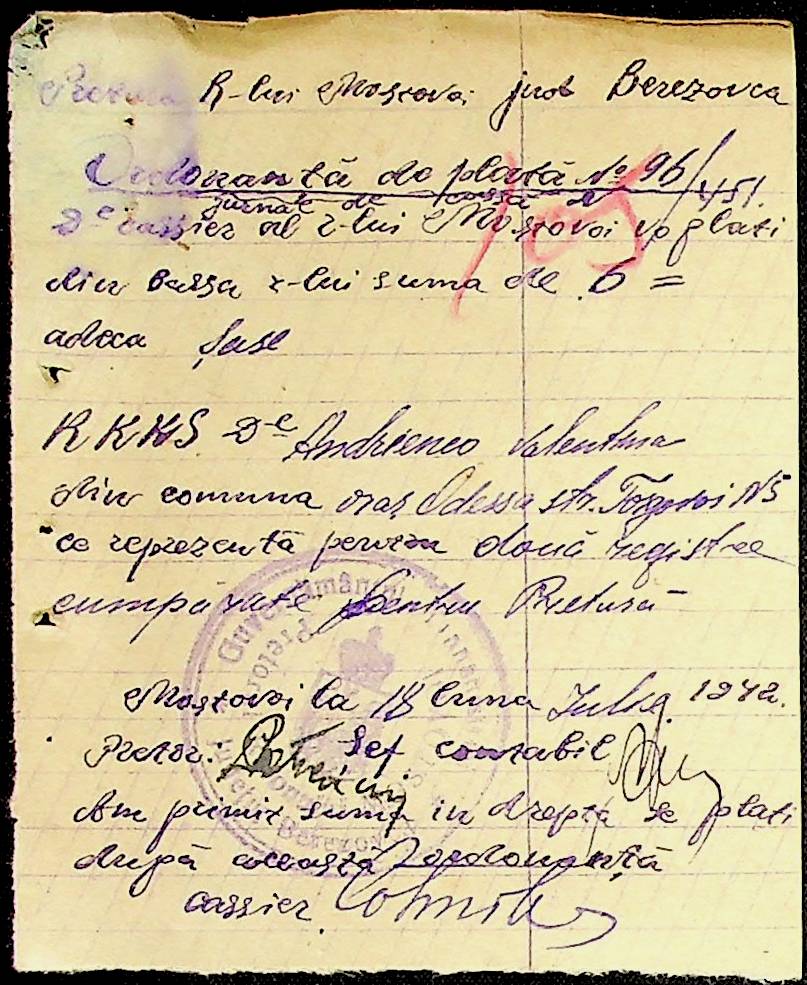 Pretura R-lui Mostovoi jud Berezovca
Ordonanță de plată No 96/451.
jurnale de cassă N 105
De cassier al r-lui Mostovoi vo plati
din Cassa r-lui suma de 6 =
adeca șase
RKKS De Andrienco Valentina
din comuna oraș Odessa str. Torgovoi N5
ce reprezentă pentru două registre
cumpărate pentru Pretură
Mostovoi la 18 luna Julie 1942.
Pretor: Șef contabil
Am primit suma in drept a se plati
după aceasta ordonanță
cassier.
Guvernământul
Pretor
Berezov